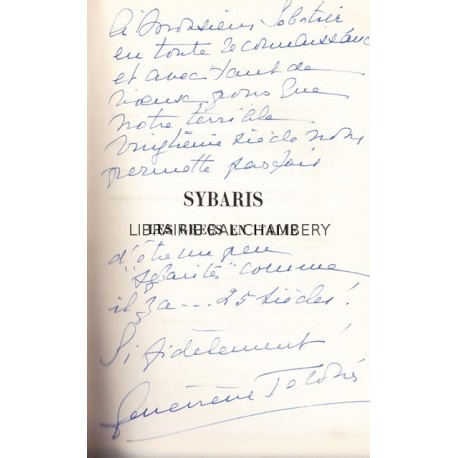 à Monsieur Sabatier
en toute reconnaissance
et avec tant de
vœux pour que
notre terrible
vingtième siècle nous
permette parfois
SYBARIS
LES GRECS EN ITALIE
LIBRAIRIE GALY CHAMBERY
d'être un peu
"sybarites" comme
il y a... 25 siècles !
Si fidèlement !
Geneviève